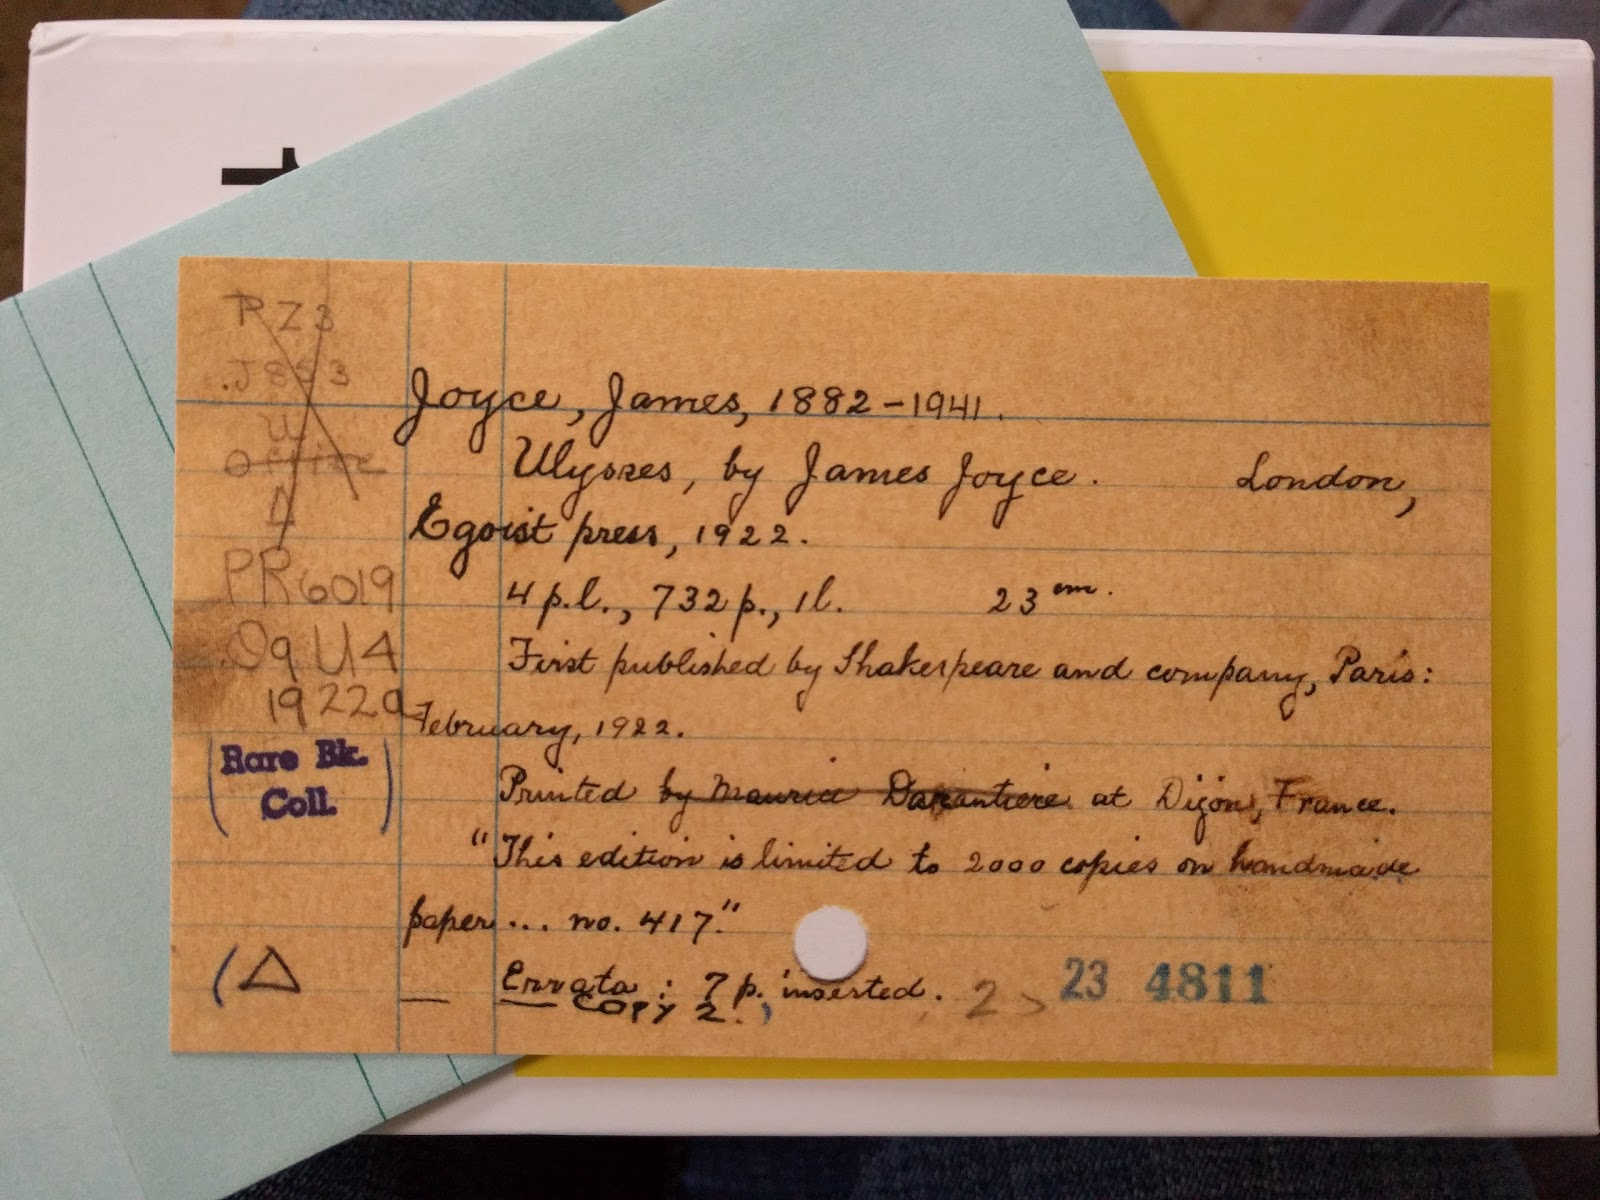 PZ3
.J853
U
Office
Δ
Joyce, James, 1882-1941.
Ulysses, by James Joyce. London,
Egoist press, 1922.
4 p.l., 732 p., 1 l. 23 cm.
First published by Shakespeare and company, Paris:
February, 1922.
Printed by Maurice Darantiere at Dijon, France.
"This edition is limited to 2000 copies on handmade
paper... no. 417."
Errata: 7 p. inserted.
COPY 2.
PR6019
.O9U4
1922a
(Rare Bk.
Coll.)
(Δ
2 > 23 4811
1